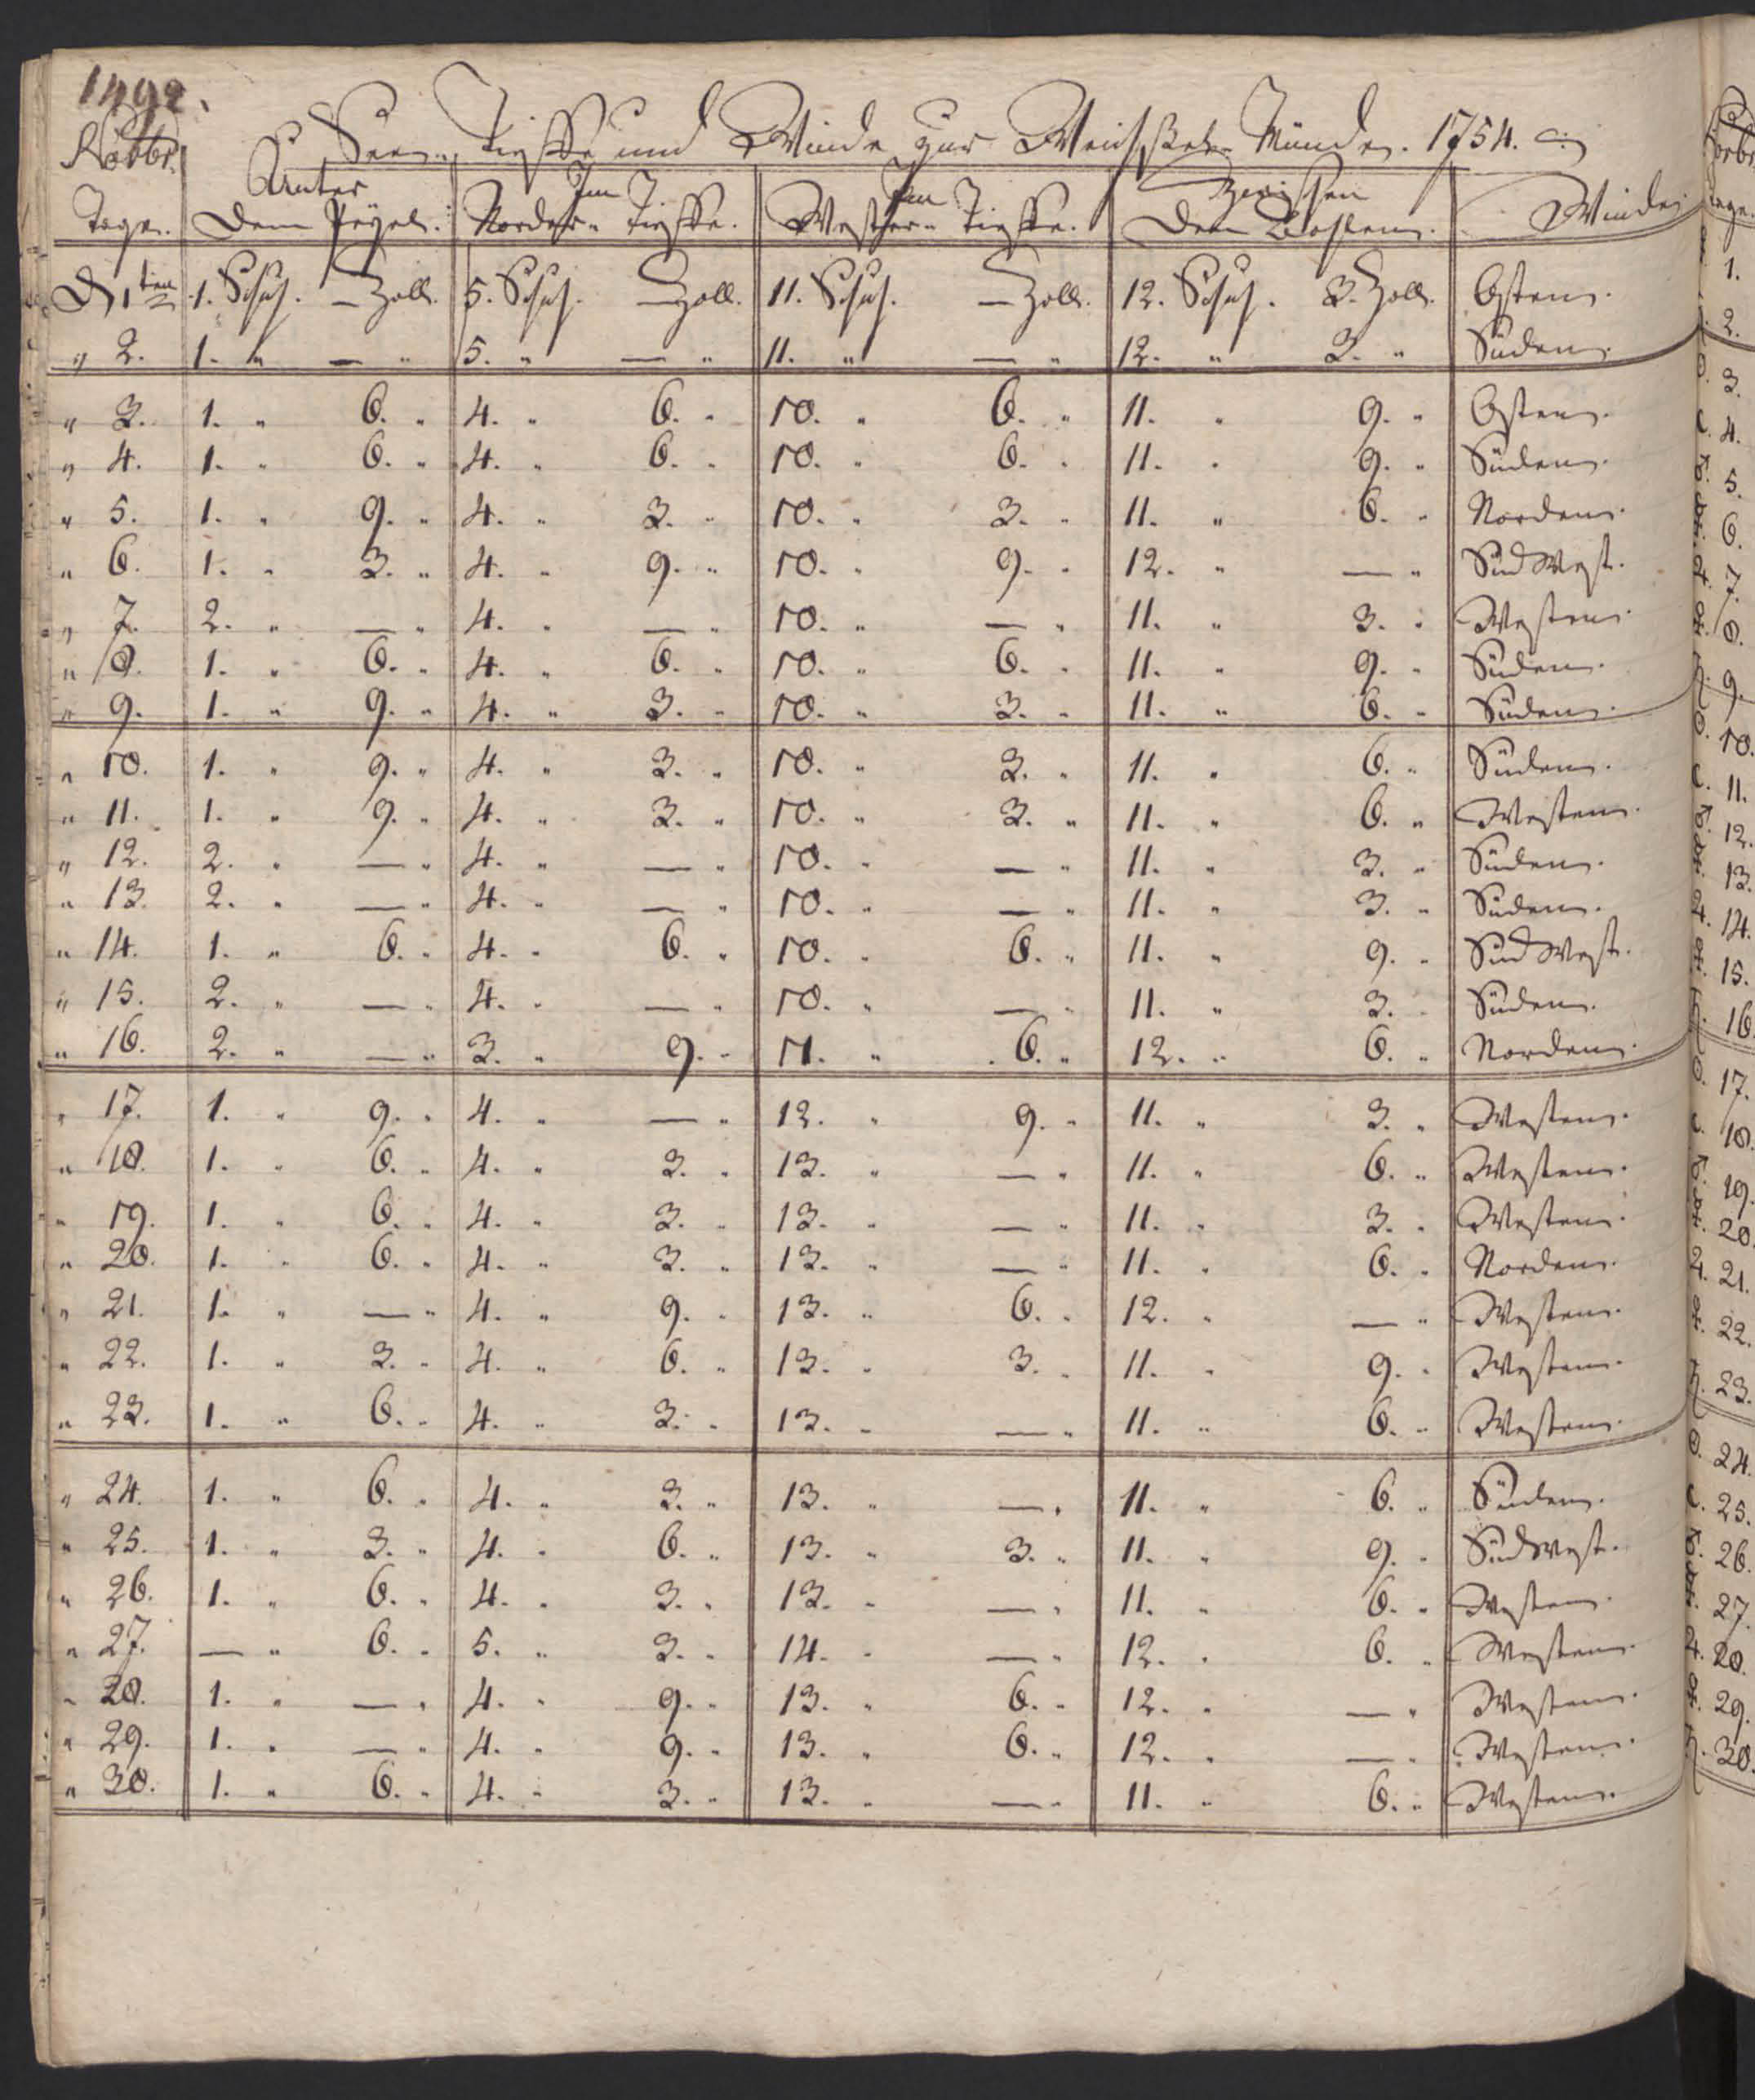 1492.
Novbr. See- Tieffe und Winde zur Weichsel- Münde. 1754.
Tage. Unter dem Pegel. Im Norder- Tieffe. Im Wester- Tieffe. Zwissen den Kosten. Winde
D 1ten 1. Schuh. — Zoll. 5. Schuh. — Zoll. 11. Schuh. — Zoll. 12. Schuh. 3. Zoll. Osten.
" 2. 1. " — " 5. " — " 11. " — " 12. " 3. " Süden.
" 3. 1. " 6. " 4. " 6. " 10. " 6. " 11. " 9. " Osten.
" 4. 1. " 6. " 4. " 6. " 10. " 6. " 11. " 9. " Süden.
" 5. 1. " 9. " 4. " 3. " 10. " 3. " 11. " 6. " Norden.
" 6. 1. " 3. " 4. " 9. " 10. " 9. " 12. " — " SüdWest.
" 7. 2. " — " 4. " — " 10. " — " 11. " 3. " Westen.
" 8. 1. " 6. " 4. " 6. " 10. " 6. " 11. " 9. " Süden.
" 9. 1. " 9. " 4. " 3. " 10. " 3. " 11. " 6. " Süden.
" 10. 1. " 9. " 4. " 3. " 10. " 3. " 11. " 6. " Süden.
" 11. 1. " 9. " 4. " 3. " 10. " 3. " 11. " 6. " Westen.
" 12. 2. " — " 4. " — " 10. " — " 11. " 3. " Süden.
" 13. 2. " — " 4. " — " 10. " — " 11. " 3. " Süden.
" 14. 1. " 6. " 4. " 6. " 10. " 6. " 11. " 9. " SüdWest.
" 15. 2. " — " 4. " — " 10. " — " 11. " 3. " Süden.
" 16. 2. " — " 3. " 9. " 11. " 6. " 12. " 6. " Norden.
" 17. 1. " 9. " 4. " — " 12. " 9. " 11. " 3. " Westen.
" 18. 1. " 6. " 4. " 3. " 13. " — " 11. " 6. " Westen.
" 19. 1. " 6. " 4. " 3. " 13. " — " 11. " 3. " Westen.
" 20. 1. " 6. " 4. " 3. " 13. " — " 11. " 6. " Norden.
" 21. 1. " — " 4. " 9. " 13. " 6. " 12. " — " Westen.
" 22. 1. " 3. " 4. " 6. " 13. " 3. " 11. " 9. " Westen.
" 23. 1. " 6. " 4. " 3. " 13. " — " 11. " 6. " Westen.
" 24. 1. " 6. " 4. " 3. " 13. " — " 11. " 6. " Süden.
" 25. 1. " 3. " 4. " 6. " 13. " 3. " 11. " 9. " Südwest.
" 26. 1. " 6. " 4. " 3. " 13. " — " 11. " 6. " Westen.
" 27. — " 6. " 5. " 3. " 14. " — " 12. " 6. " Westen.
" 28. 1. " — " 4. " 9. " 13. " 6. " 12. " — " Westen.
" 29. 1. " — " 4. " 9. " 13. " 6. " 12. " — " Westen.
" 30. 1. " 6. " 4. " 3. " 13. " — " 11. " 6. " Westen.
1.
2.
3.
4.
5.
6.
7.
8.
9.
10.
11.
12.
13.
14.
15.
16
17.
18.
19.
20.
21.
22.
23.
24.
25.
26.
27.
28.
29.
30.